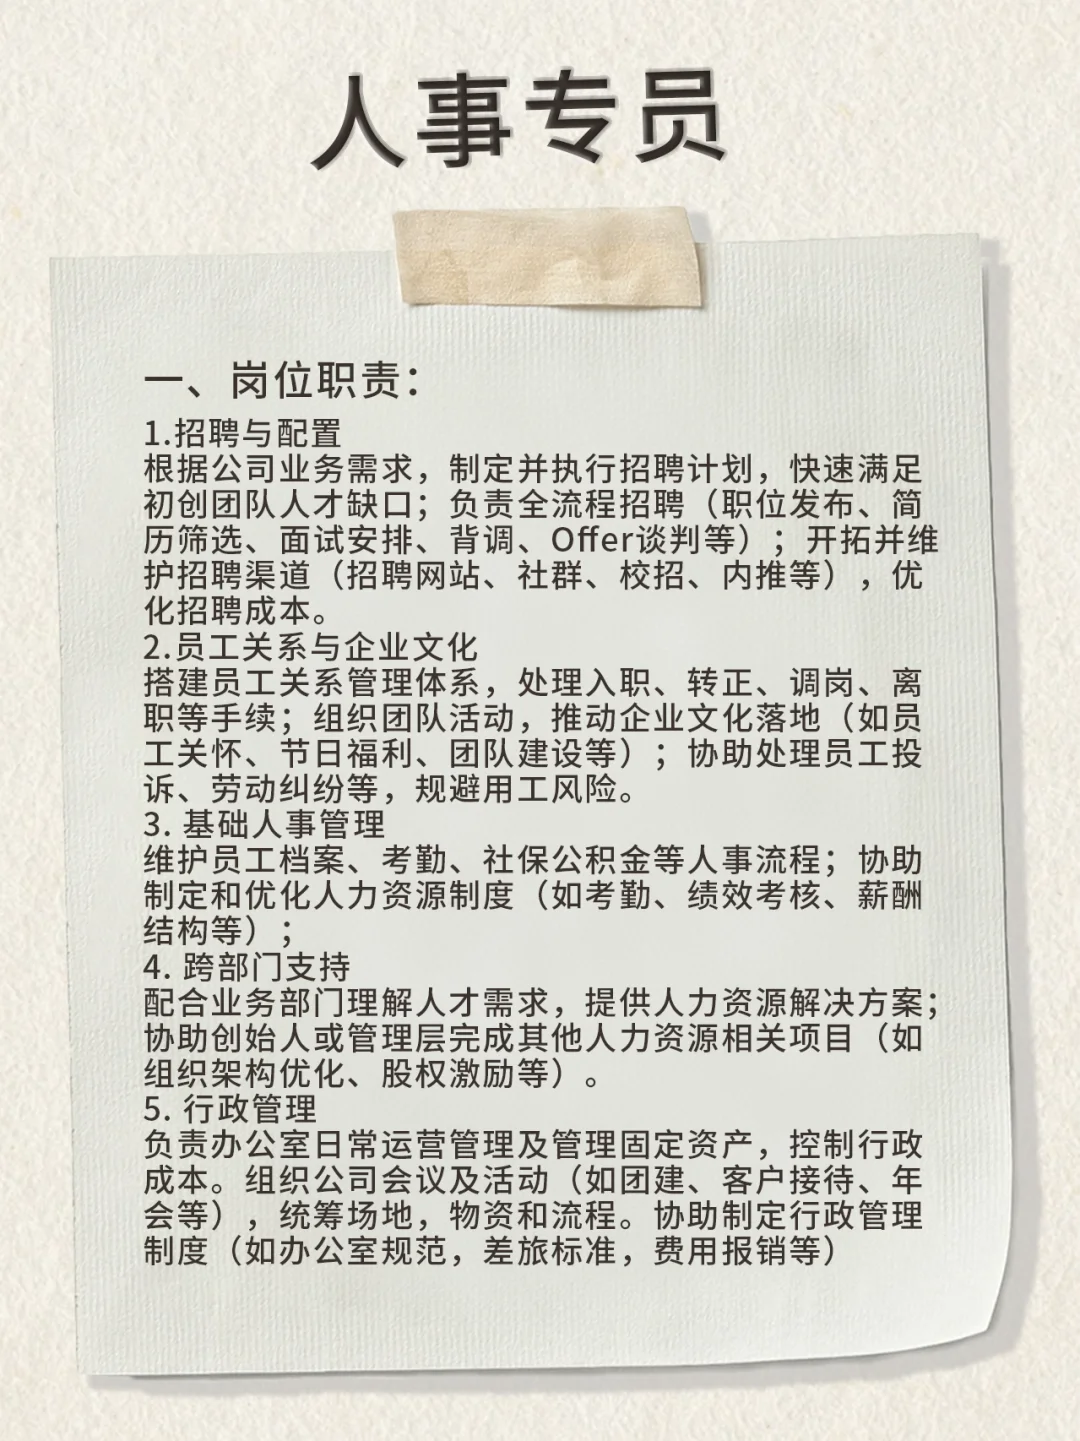 人事专员
一、岗位职责：
1.招聘与配置
根据公司业务需求，制定并执行招聘计划，快速满足
初创团队人才缺口；负责全流程招聘（职位发布、简
历筛选、面试安排、背调、Offer谈判等）；开拓并维
护招聘渠道（招聘网站、社群、校招、内推等），优
化招聘成本。
2.员工关系与企业文化
搭建员工关系管理体系，处理入职、转正、调岗、离
职等手续；组织团队活动，推动企业文化落地（如员
工关怀、节日福利、团队建设等）；协助处理员工投
诉、劳动纠纷等，规避用工风险。
3. 基础人事管理
维护员工档案、考勤、社保公积金等人事流程；协助
制定和优化人力资源制度（如考勤、绩效考核、薪酬
结构等）；
4. 跨部门支持
配合业务部门理解人才需求，提供人力资源解决方案；
协助创始人或管理层完成其他人力资源相关项目（如
组织架构优化、股权激励等）。
5. 行政管理
负责办公室日常运营管理及管理固定资产，控制行政
成本。组织公司会议及活动（如团建、客户接待、年
会等），统筹场地，物资和流程。协助制定行政管理
制度（如办公室规范，差旅标准，费用报销等）